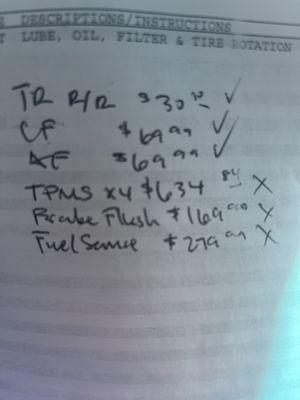 E DESCRIPTIONS/INSTRUCTIONS
T LUBE, OIL, FILTER & TIRE ROTATION
TR R/R $30 ✓
CF $69.99 ✓
AF $69.99 ✓
TPMS x4 $634 84 X
Brake Flush $169.99 X
Fuel Service $279.99 X